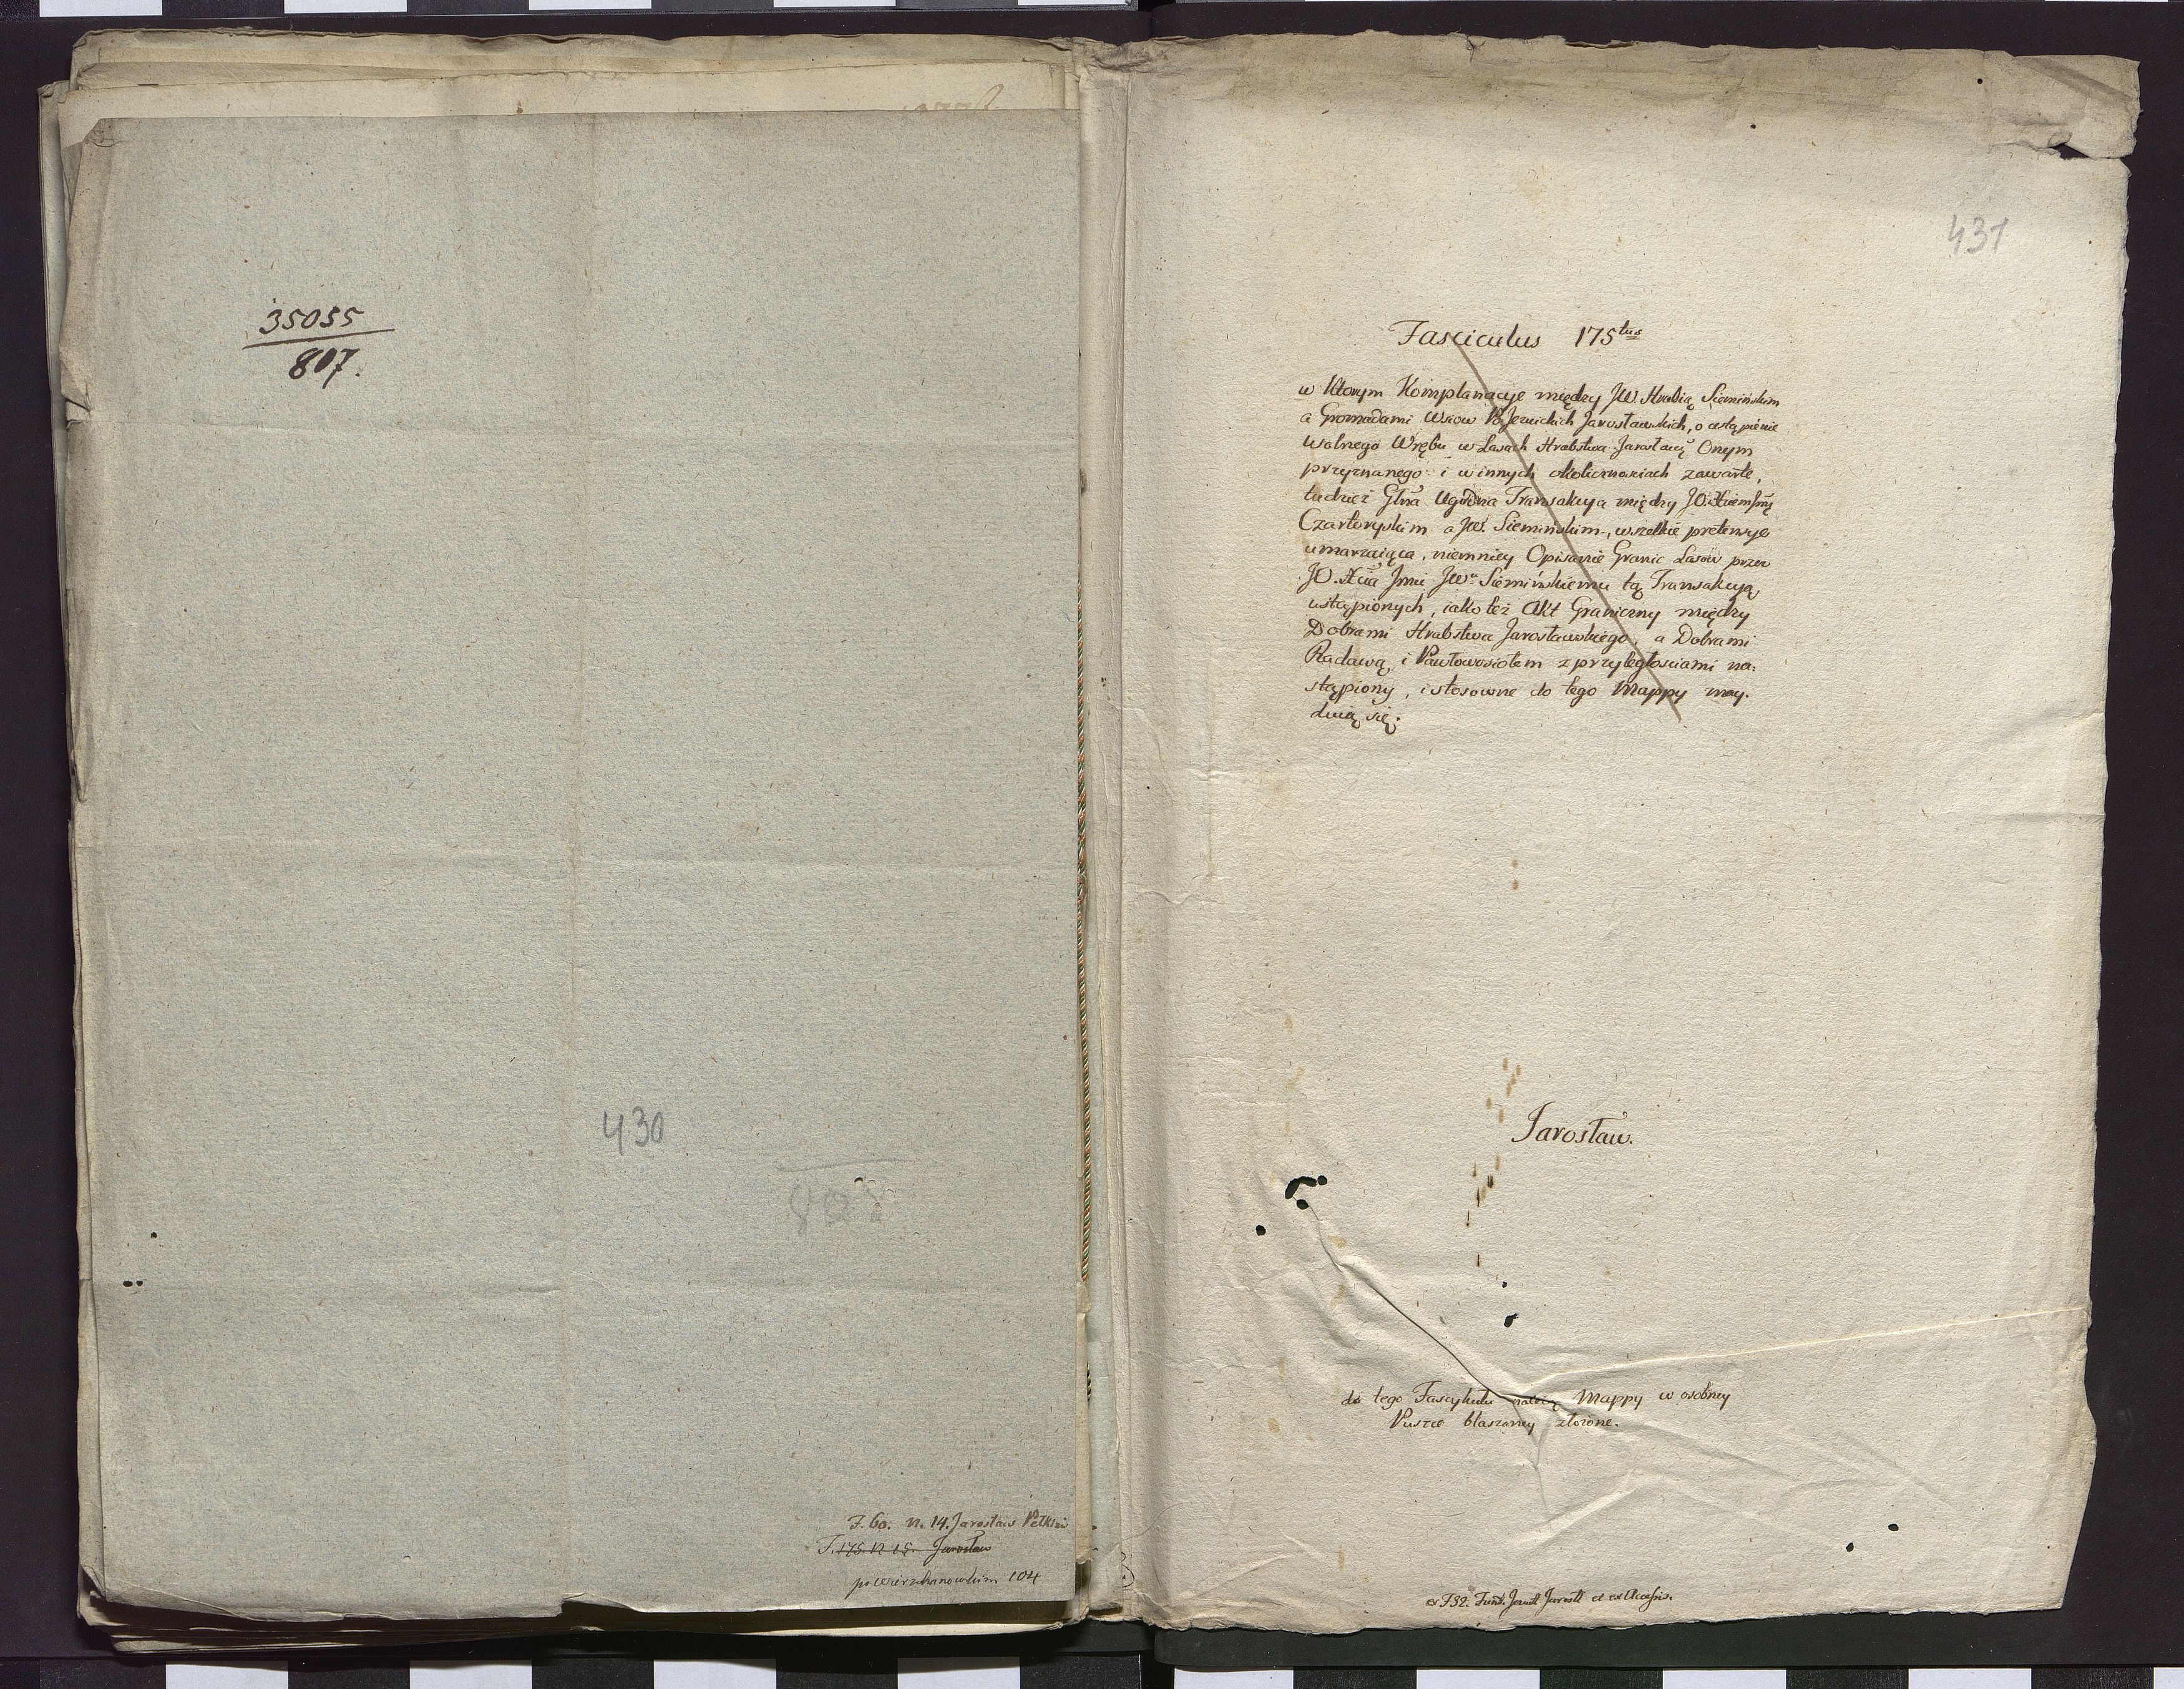 35055
807.
430
F. 60. n. 14. Jarosław Pełkinie
F. 175. N 15. Jarosław
po Wierzchanowskim 104
431
Fasciculus 175tus
w Ktorym Komplanacye między JW. Hrabią Siemińskim
a Gromadami Wsiow PoJezuickich Jarosławskich, o ustąpienie
Wolnego Wrębu w Lasach Hrabstwa Jarosławs. Onym
przyznanego i w innych okolicznosciach zawarte,
tudzież Głña Ugodna Transakcya między JO.
Czartoryskim a JW. Siemińskim, wszelkie pretensye
umarzaiąca, niemniey Opisanie Granic Lasow przez
JO. Jmci JWu Siemińskiemu tą Transakcyą
ustąpionych, iako też Akt Graniczny między
Dobrami Hrabstwa Jarosławskiego, a Dobrami
Radawą, i Pawłowosiołem z przyległosciami na:
stąpiony, i stosowne do tego Mappy znay.
duią się.
Jarosław.
do tego Fascykułu należą Mappy w osobney
Puszce blaszaney złożone.
ex F32. Fund. Jezuit Jarosł et ex